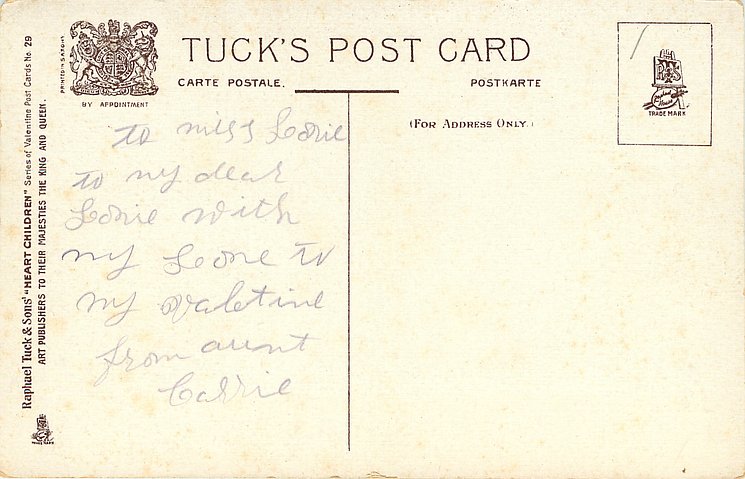 TUCK'S POST CARD
CARTE POSTALE.
POSTKARTE
(FOR ADDRESS ONLY.)
BY APPOINTMENT
PRINTED IN SAXONY
TRADE MARK
Raphael Tuck & Sons' "HEART CHILDREN" Series of Valentine Post Cards No. 29
ART PUBLISHERS TO THEIR MAJESTIES THE KING AND QUEEN.
TRADE MARK
to miss Lorie
to my dear
Lorie with
my Love to
my valetine
from aunt
Carrie